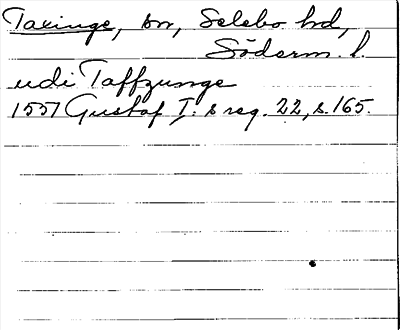 Taxinge, sn, Selebo hd,
Söderm. l.
udi Taffzunge
1557 Gustaf I:s reg. 22, s. 165.